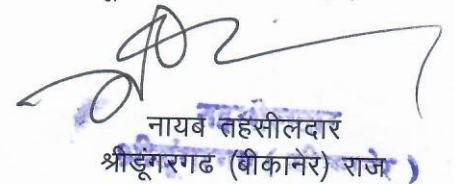 नायब तहसीलदार
श्रीडूंगरगढ (बीकानेर) राज )